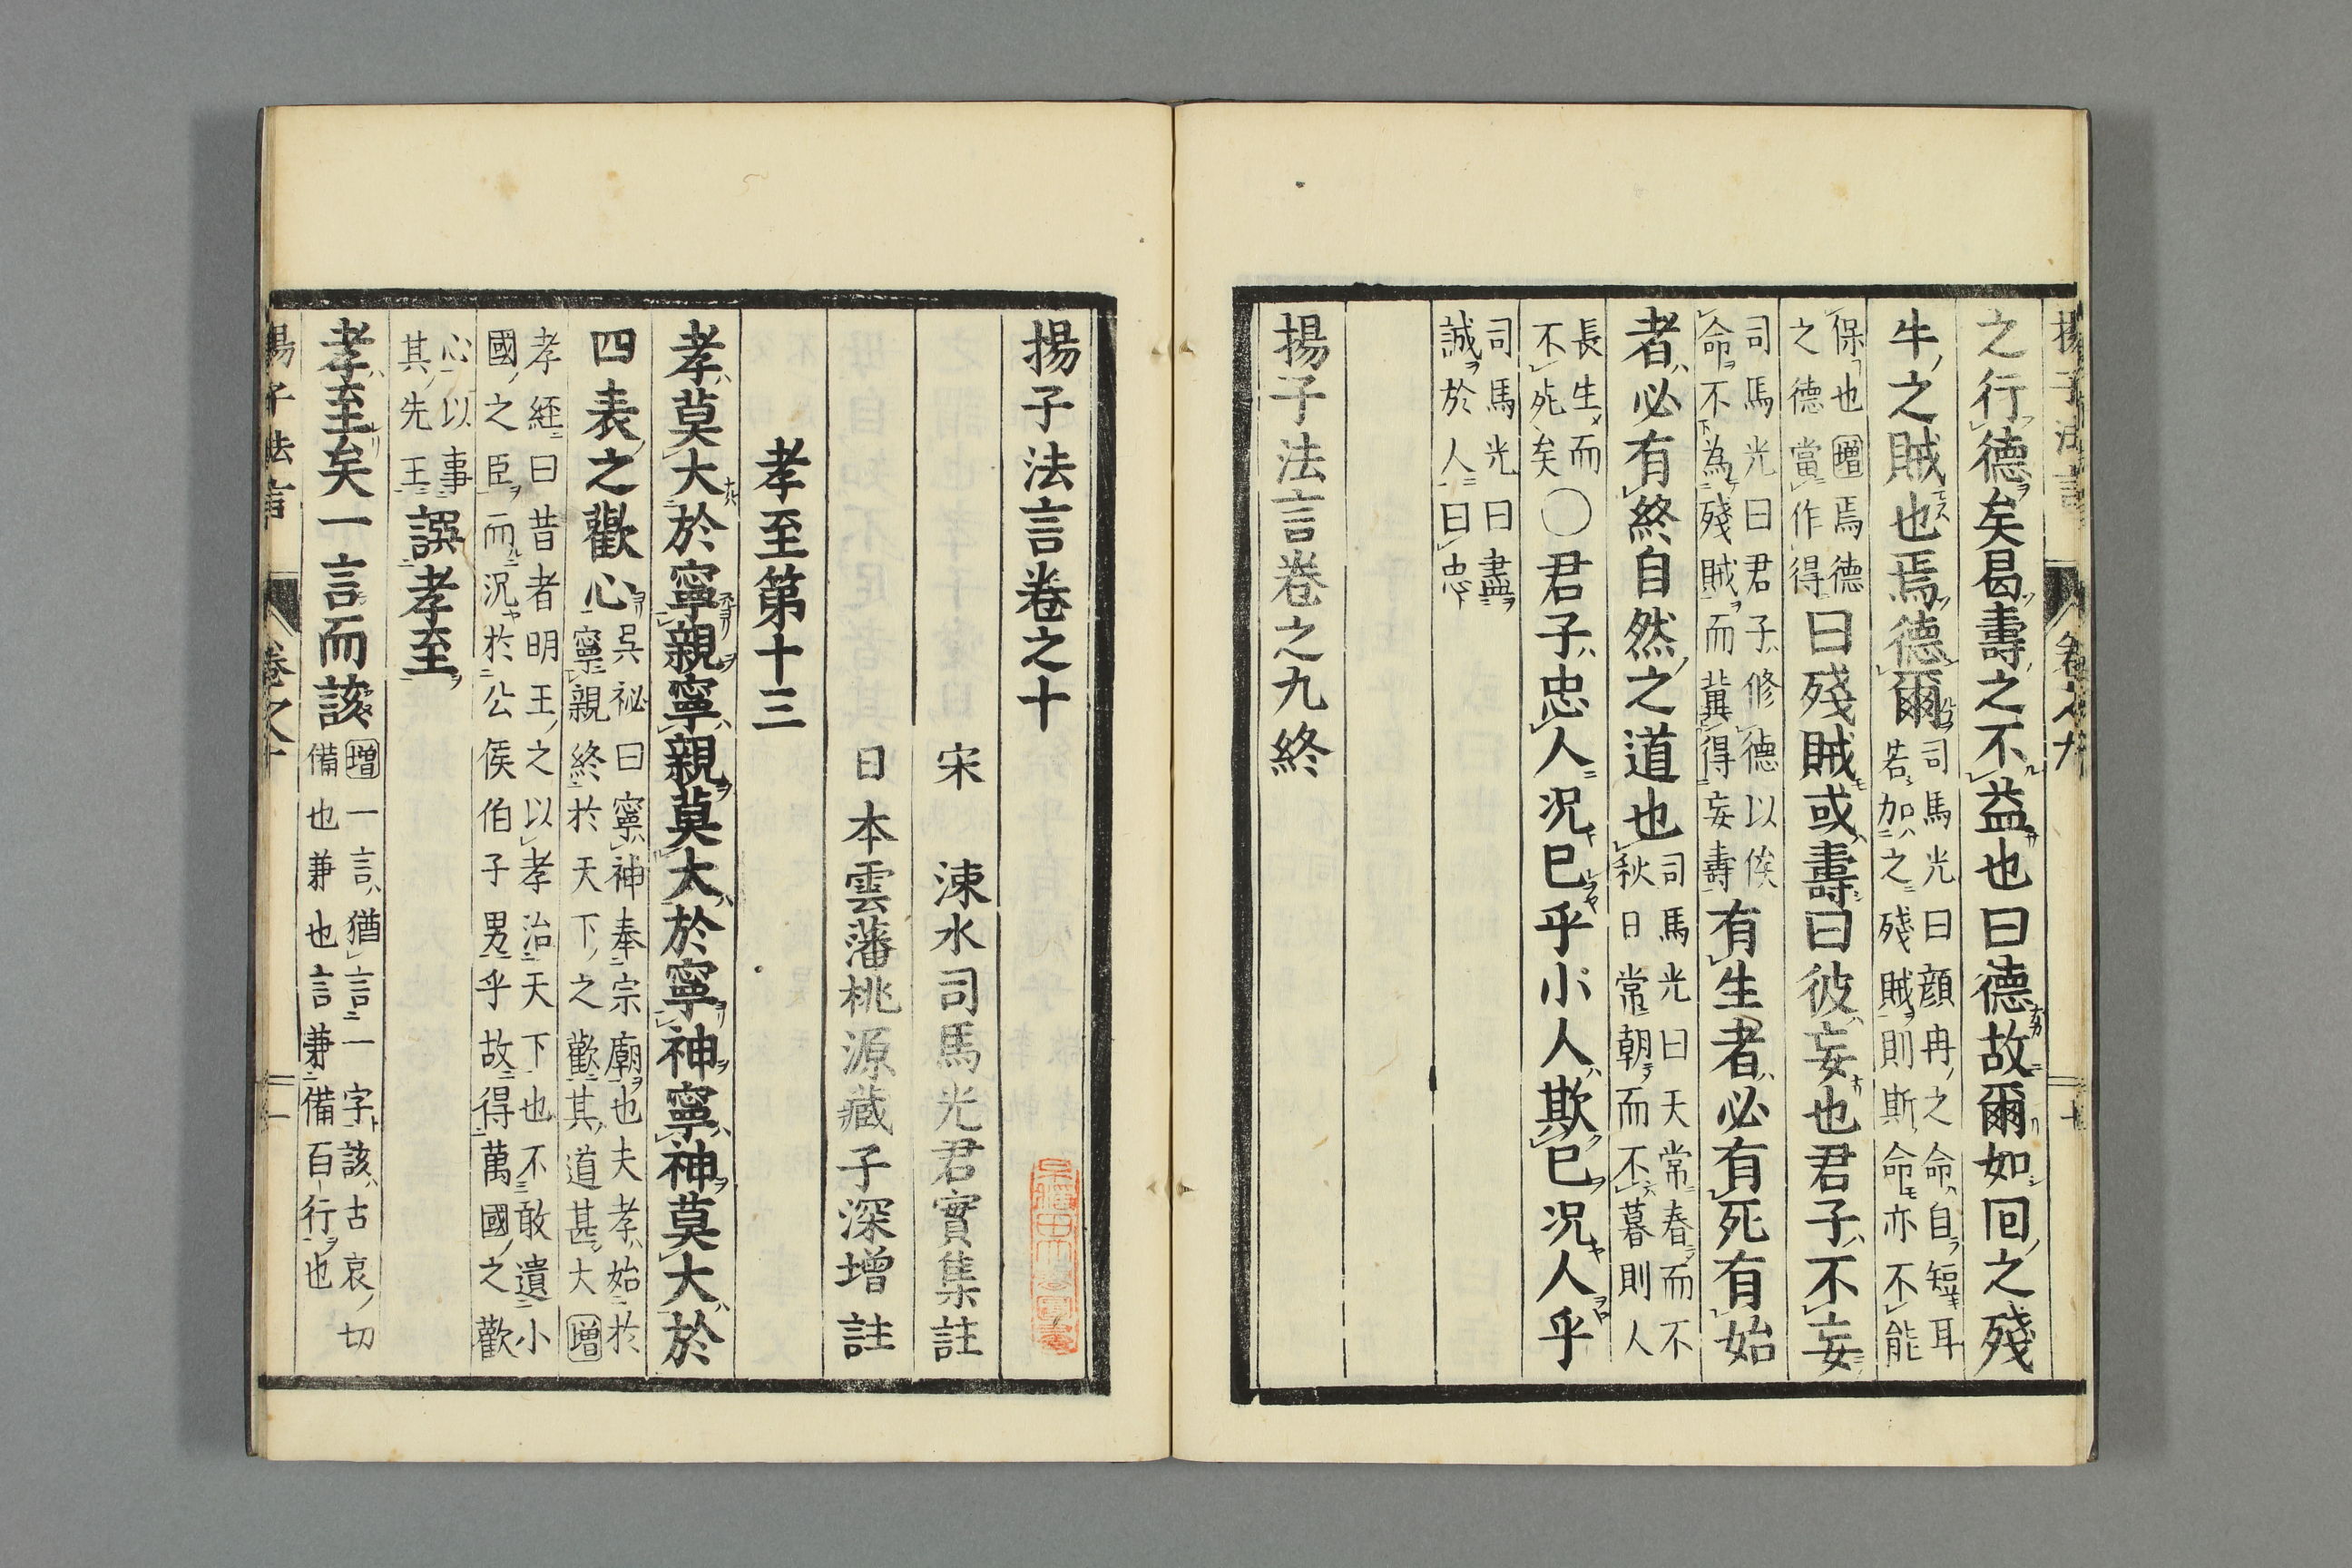 揚子法言 卷之九 十
之行德矣曷壽之不益也曰德故爾如回之殘
牛之賊也焉德爾司馬光曰顔冉之命自短耳若加之殘賊則斯命亦不能
保也增焉德之德當作得曰殘賊或壽曰彼妄也君子不妄
司馬光曰君子修德以俟命不為殘賊而冀得妄壽有生者必有死有始
者必有終自然之道也司馬光曰天常春而不秋日常朝而不暮則人
長生而不死矣〇君子忠人況已乎小人欺已況人乎
司馬光曰盡誠於人曰忠
揚子法言卷之九終
揚子法言卷之十
宋 涑水司馬光君實集註
日本雲藩桃源藏子深增註
孝至第十三
孝莫大於寧親寧親莫大於寧神寧神莫大於
四表之歡心吳祕曰寧神奉宗廟也夫孝始於寧親終於天下之歡其道甚大增
孝經曰昔者明王之以孝治天下也不敢遺小國之臣而況於公侯伯子男乎故得萬國之歡
心以事其先王譔孝至
孝至矣一言而該增一言猶言一字該古哀切備也兼也言兼備百行也
揚子法言 卷之十 一